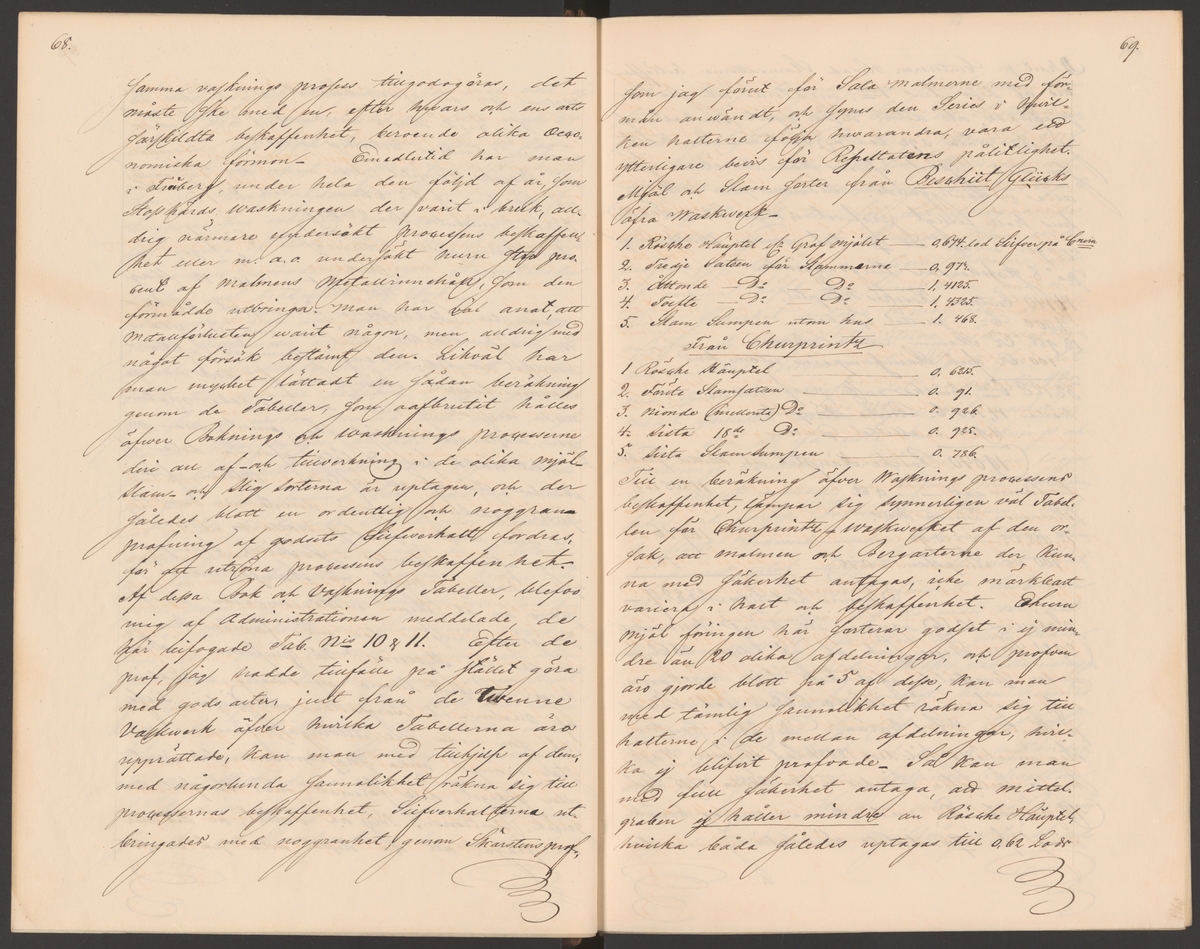 68.
samma vasknings process tillgodogöras, det
måste ske med en, efter hvars och ens arts
särskildta beskaffenhet, beroende olika Oeco-
nomiska förmon_ Emedlertid har man
i Freiberg, under hela den följd af år, som
Stosshärds waskningen der varit i bruk, al-
drig närmare undersökt processens beskaffen-
het eller m. a. o. undersökt huru stor pro-
cent af malmens Metallinnehåll, som den
förmådde utbringa. Man har väl anat, att
metallförlusten warit någon, men aldrig med
något försök bestämt den. Likväl har
man mycket lättadt en sådan beräkning
genom de Tabeller, som oafbrutit hålles
öfwer Boknings och Wasknings processerne
deri all af- och tillverkning i de olika mjöl-
slam- och slig sorterna är uptagen, och der
således blott en ordentlig och noggran
profning af godsets Silfverhalt fordras,
för att utröna processens beskaffenhet_
Af dessa Bok och Vasknings Tabeller, blefvo
mig af Administrationen meddelade, de
här bifogade Tab. Nis 10 & 11. Efter de
prof, jag hade tillfälle på stället göra
med gods arter, just från de Twenne
Vaskwerk öfver hvilka Tabellerna äro
upprättade, kan man med tillhjelp af dem,
med någorlunda sannolikhet räkna sig till
processernas beskaffenhet, Silfverhalterna ut-
bringades med noggranhet genom Skärstensprof,
69.
som jag förut för Sala malmerne med för-
mån anwändt, och synes den Series i hvil-
ken halterne följa hwarandra, vara ett
ytterligare bevis för Resultatens pålitlighet.
Mjöl och Slam sorter från Beschert Glücks
öfra Waskwerk_
1. Rösche Häuptel efr Graf mjölet — 0,674. lod Silfver på Cnern
2. Tredje Satsen för Slammerne — 0. 973.
3. Åttonde — Do — Do — 1. 4125.
4. Tolfte — Do Do — 1. 4325.
5. Slam Sumpen utom hus — 1. 468.
Från Churprintz
1 Rösche Häuptel — 0. 6215.
2. Förste Slamsatsen — 0. 91.
3. Nionde (mellersta) Do — 0. 926.
4. Sista 18de Do — 0. 925.
5. Sista Slamsumpen — 0. 786.
Till en beräkning öfver Wasknings processens
beskaffenhet, lämpar sig synnerligen väl Tabel-
len för Churprintz waskwerket af den or-
sak, att malmen och Bergarterne der kun-
na med säkerhet antagas, icke märkbart
variera i hart och beskaffenhet. Ehuru
mjöl föringen här sorterar godset i ej min-
dre än 20 olika afdelningar, och profven
äro gjorde blott på 5 af dessa, kan man
med tämlig sannolikhet räkna sig till
halterne i de mellan afdelningar, hvil-
ka ej blifvit profvade_ Så kan man
med full säkerhet antaga, att mittel-
graben ej håller mindre än Rösche Häuptel,
hvilka båda således uptagas till 0,62 Lod